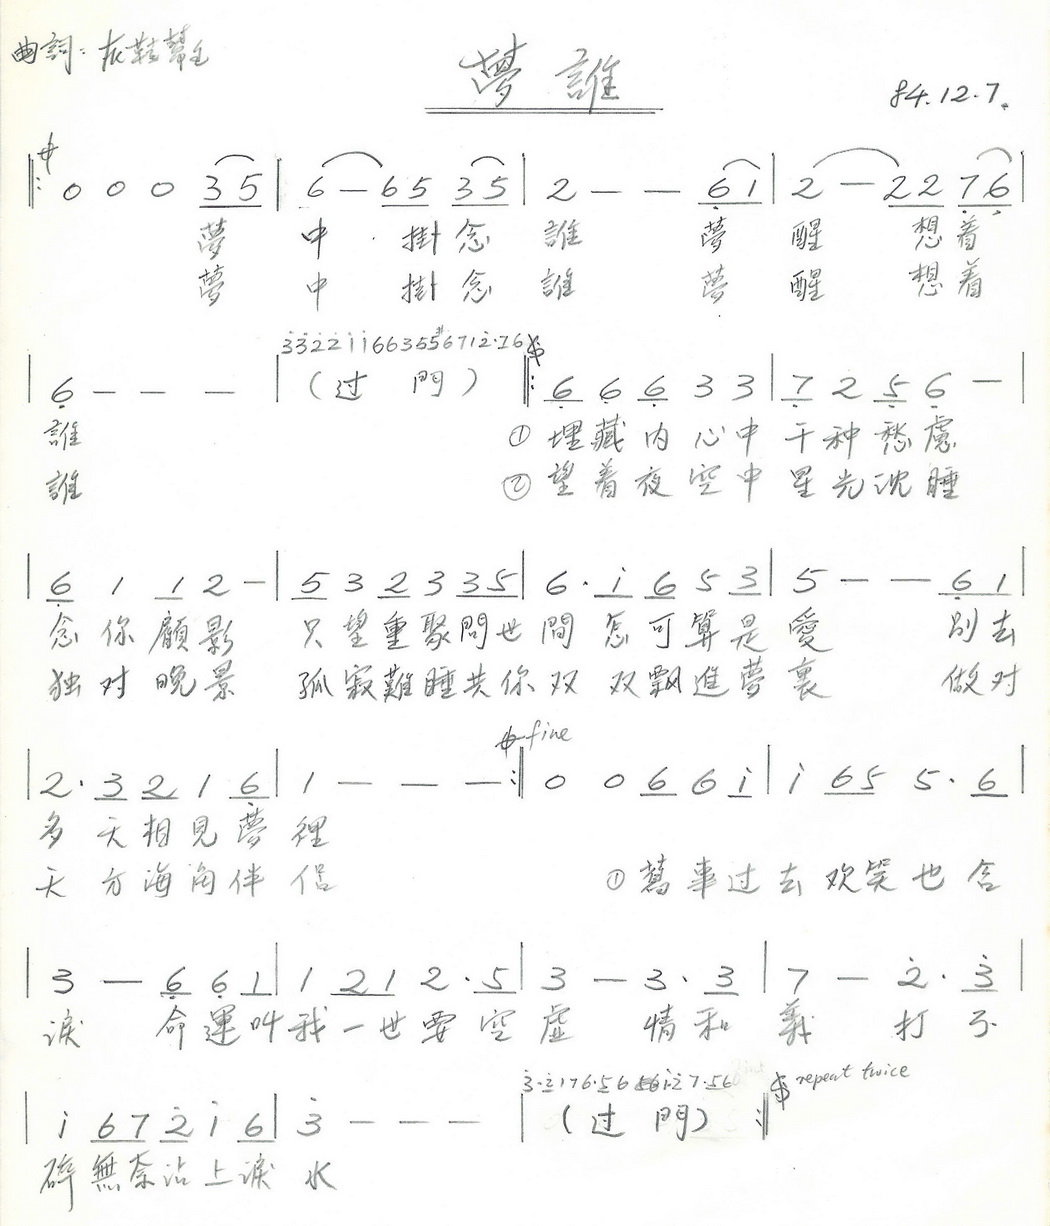 曲詞：灰鞋幫主
夢誰
84.12.7.
0 0 0 3 5 | 6 — 6 5 3 5 | 2 — — 6 1 | 2 — 2 2 7 6 |
夢 中 掛 念 誰 夢 醒 想 着
夢 中 掛 念 誰 夢 醒 想 着
3 3 2 2 1 1 6 6 3 5 #5 6 7 1 2·7 6
| 6 — — — | (过門) 6 6 6 3 3 | 7 2 5 6 — |
誰 ① 埋 藏 内 心 中 千 种 愁 慮
誰 ② 望 着 夜 空 中 星 光 沈 睡
| 6 1 1 2 — | 5 3 2 3 3 5 | 6 · i 6 5 3 | 5 — — 6 1 |
念 你 顧 影 只 望 重 聚 問 世 間 怎 可 算 是 愛 別 去
独 对 晚 景 孤 寂 難 睡 共 你 双 双 飄 進 夢 裏 做 对
fine
| 2 · 3 2 1 6 | 1 — — — :| 0 0 6 6 i | i 6 5 5 · 6 |
多 天 相 見 夢 裡
天 方 海 角 伴 侶 ① 萬 事 过 去 欢 笑 也 含
| 3 — 6 6 1 | 1 2 1 2 · 5 | 3 — 3 · 3 | 7 — 2 · 3 |
淚 命 運 叫 我 一 世 要 空 虛 情 和 義 打 不
3·2 1 7 6·5 6 i 2 7·5 6 repeat twice
| i 6 7 2 i 6 | 3 — — — | (过門) :|
碎 無 奈 沾 上 淚 水